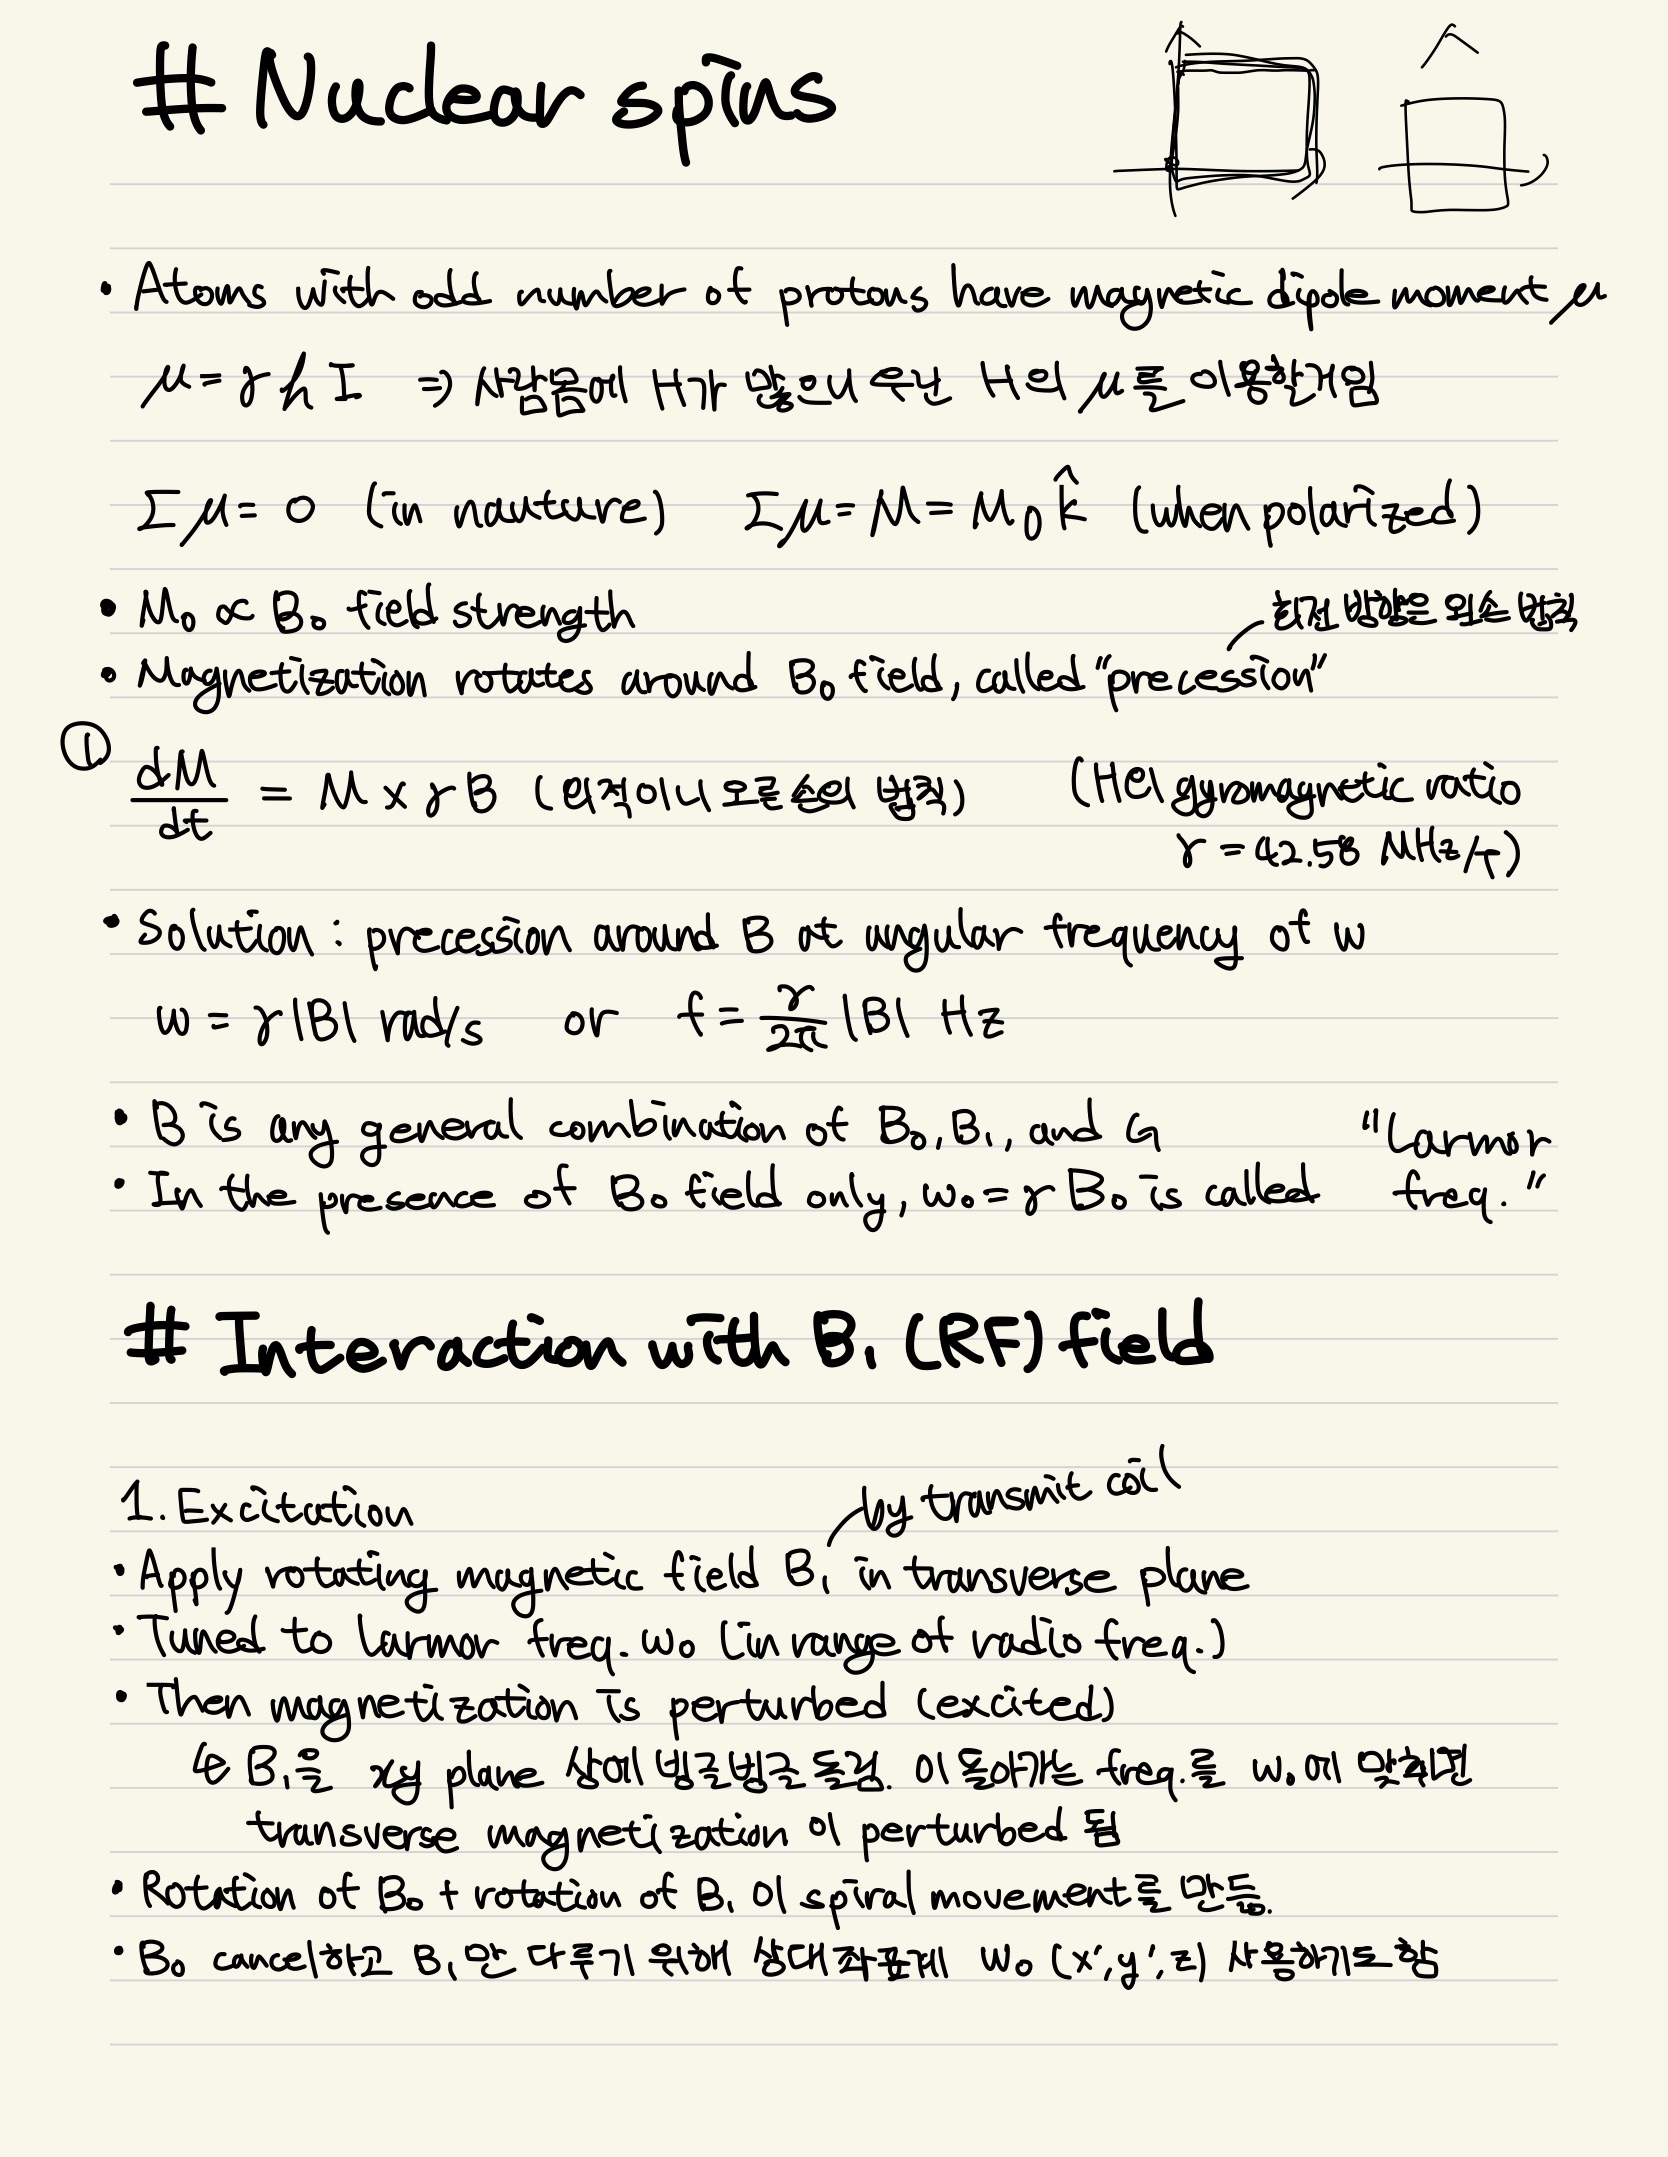 # Nuclear spins
• Atoms with odd number of protons have magnetic dipole moment μ
μ = γ ℏ I ⇒ 사람몸에 H가 많으니 우린 H의 μ를 이용할거임
Σμ = 0 (in nauture) Σμ = M = M₀ k̂ (when polarized)
• M₀ ∝ B₀ field strength
회전 방향은 왼손 법칙
• Magnetization rotates around B₀ field, called "precession"
① dM/dt = M × γB (외적이니 오른손의 법칙) (H의 gyromagnetic ratio
γ = 42.58 MHz/T)
• Solution : precession around B at angular frequency of w
w = γ|B| rad/s or f = γ/2π |B| Hz
• B is any general combination of B₀, B₁, and G
• In the presence of B₀ field only, w₀ = γB₀ is called "Larmor freq."
# Interaction with B₁ (RF) field
1. Excitation
by transmit coil
• Apply rotating magnetic field B₁ in transverse plane
• Tuned to Larmor freq. w₀ (in range of radio freq.)
• Then magnetization is perturbed (excited)
↳ B₁을 xy plane 상에 빙글빙글 돌림. 이 돌아가는 freq.를 w₀에 맞추면
transverse magnetization이 perturbed 됨
• Rotation of B₀ + rotation of B₁이 spiral movement를 만듦.
• B₀ cancel하고 B₁만 다루기 위해 상대좌표계 w₀ (x', y', z) 사용하기도 함